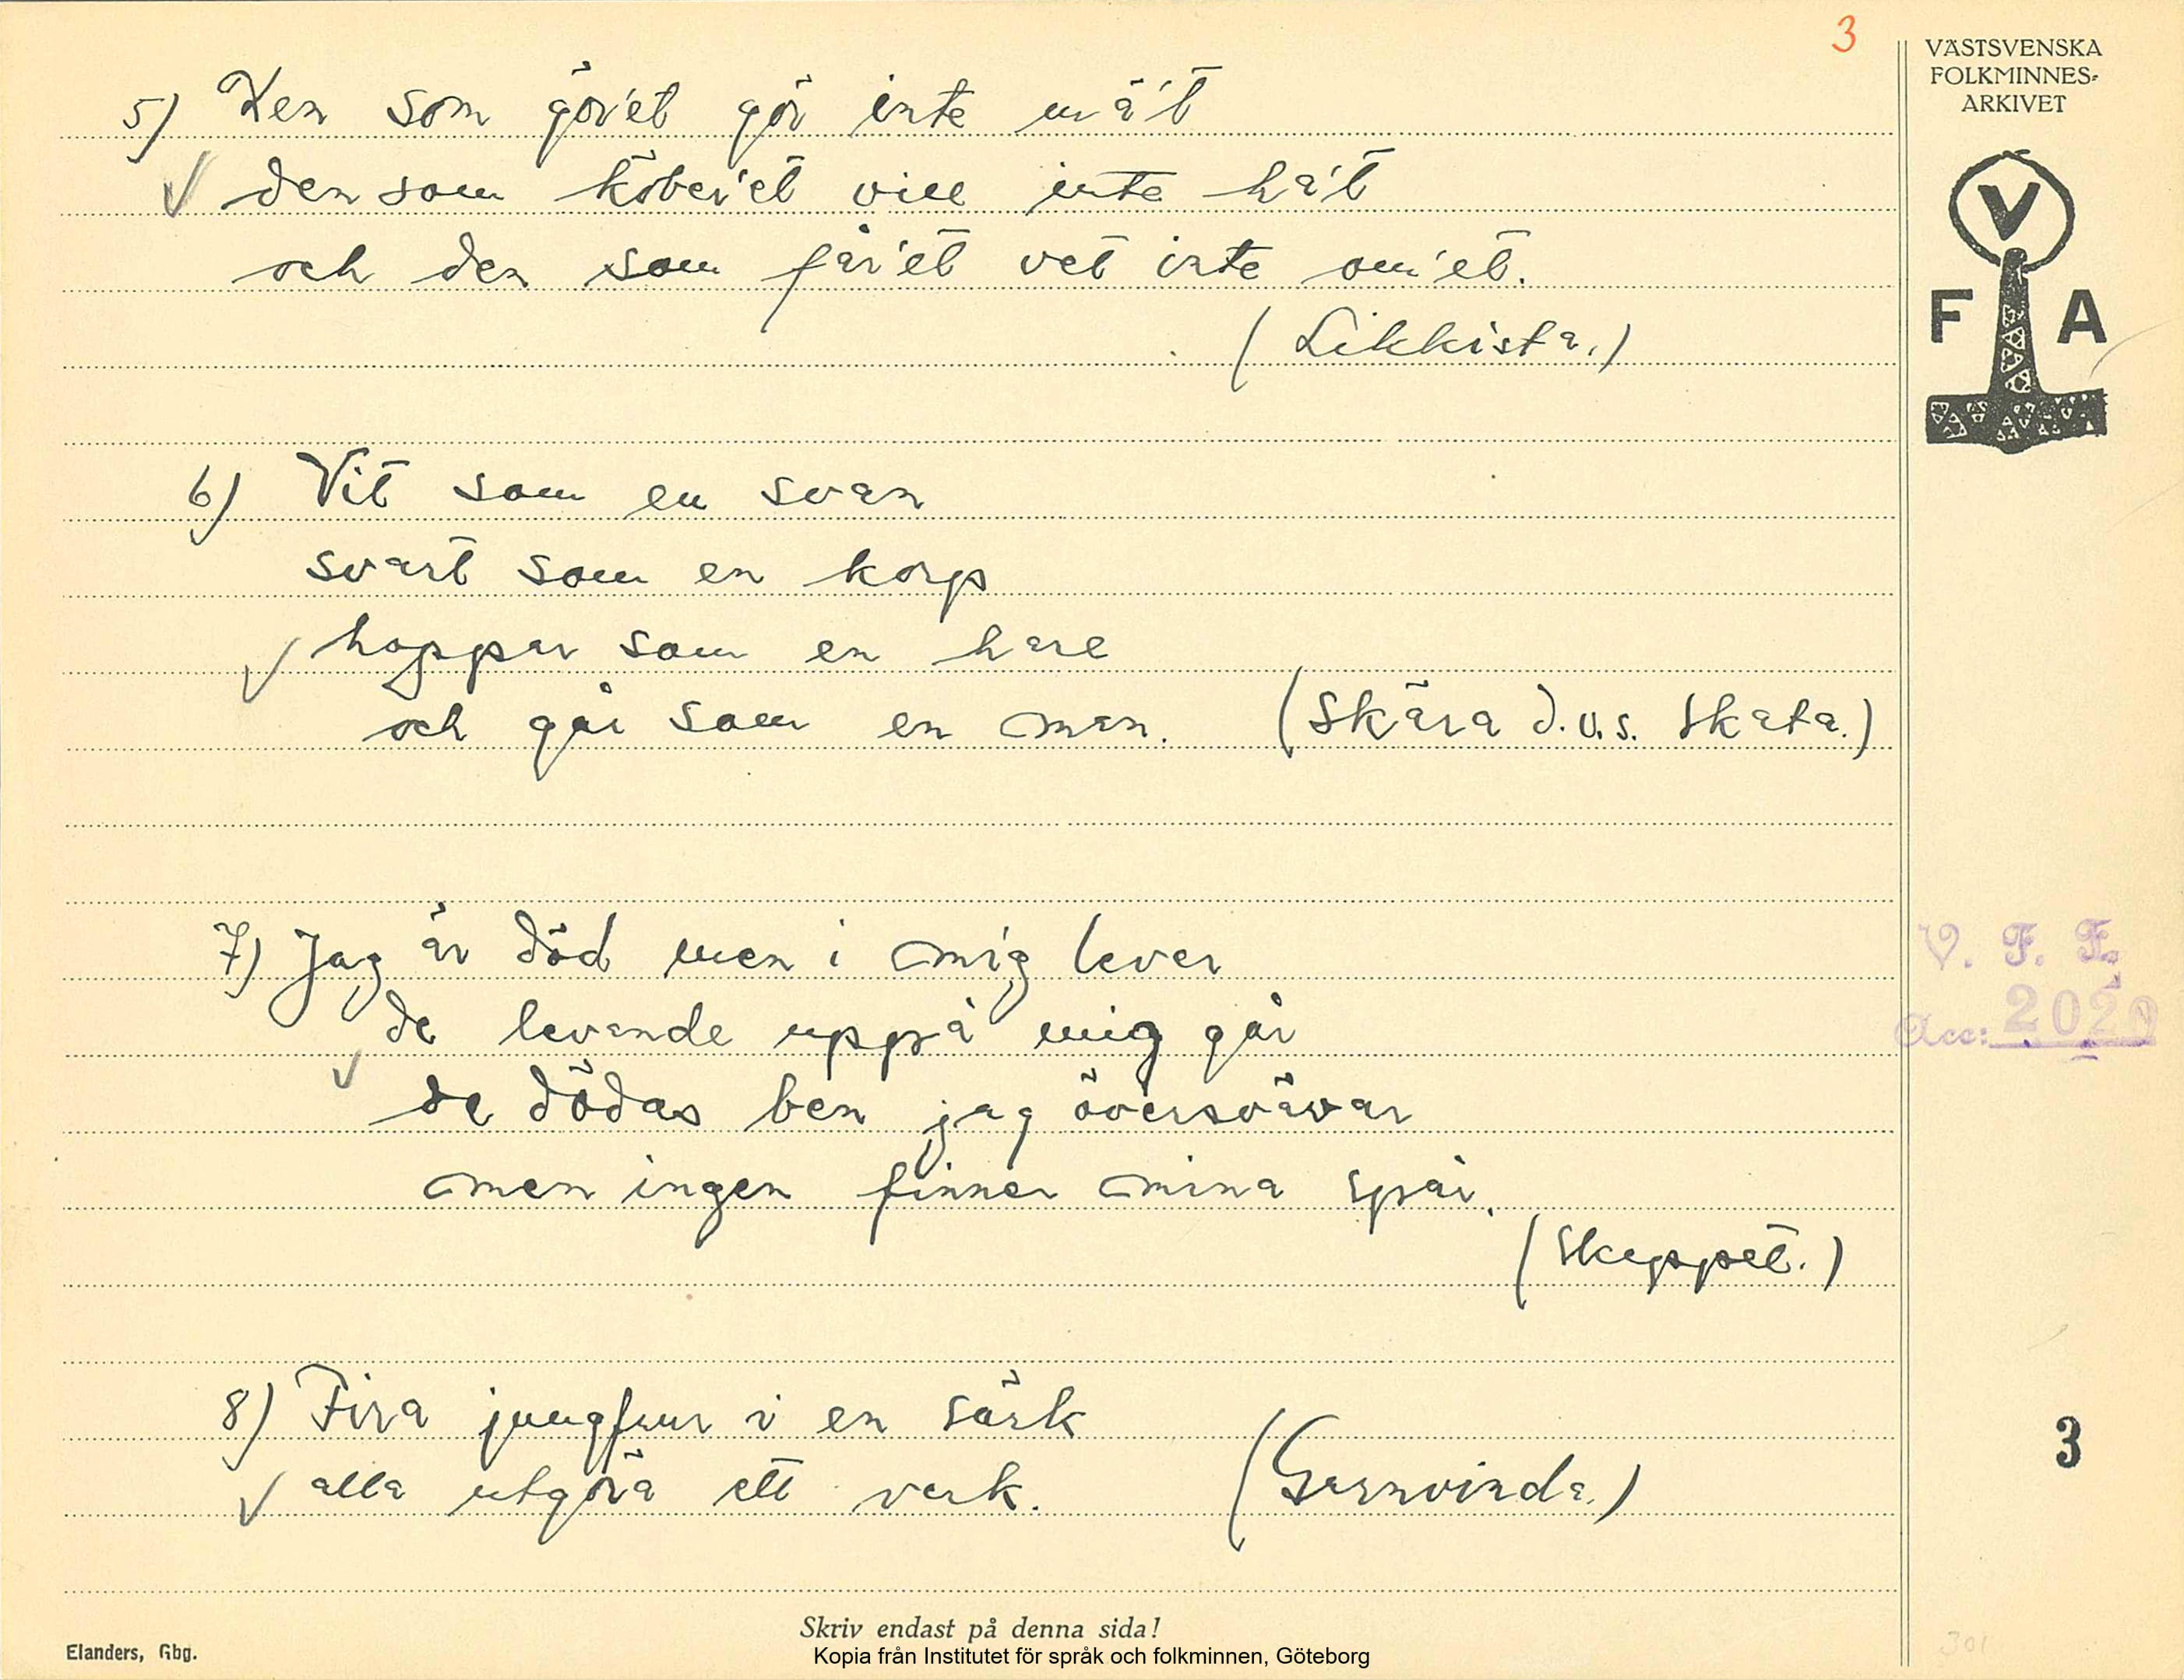 3
VÄSTSVENSKA
FOLKMINNES-
ARKIVET
V
F A
5) Den som gör'et gör inte mä't
den som köber'et vill inte ha't
och den som får'et vet inte om'et.
(Likkista.)
6) Vit som en svan
svart som en korp
hoppar som en hare
och går som en man. (Skära d.v.s. skata.)
7) Jag är död men i mig lever
de levande uppå mig går
de dödas ben jag översvävar
men ingen finner mina spår.
(Skeppet.)
V. F. F.
Acc: 2020
8) Fira jungfrur i en särk
alla utgöra ett vark. (Garnvinda.)
3
Skriv endast på denna sida!
Elanders, Gbg.
Kopia från Institutet för språk och folkminnen, Göteborg
301